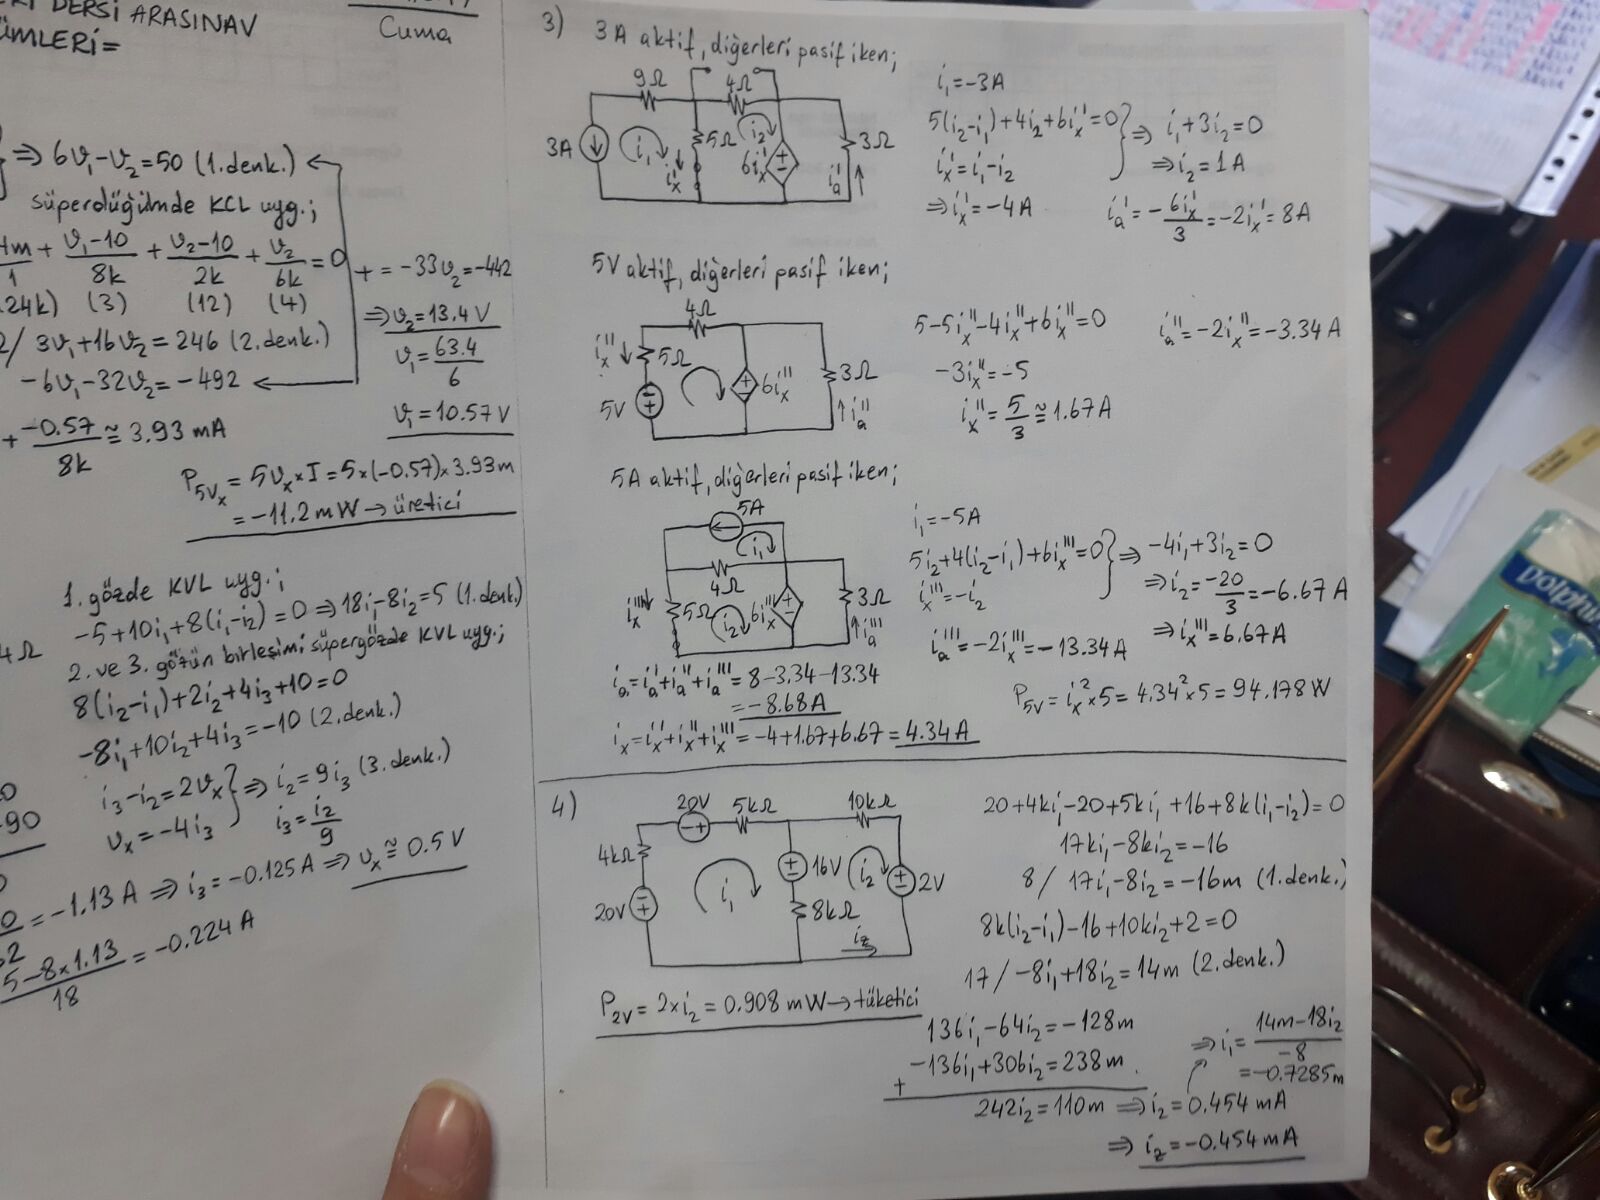 DERSİ ARASINAV
Cuma
⇒ 6v₁-v₂=50 (1.denk.)
süperdüğümde KCL uyg.;
+ (v₁-10)/8k + (v₂-10)/2k + v₂/6k = 0
(3) (12) (4)
3v₁+16v₂=246 (2.denk.)
-6v₁-32v₂=-492
+ = -33v₂=-442
⇒ v₂=13.4 V
v₁=63.4/6
v₁=10.57 V
+ -0.57/8k ≅ 3.93 mA
P₅ᵥₓ = 5vₓ×I = 5×(-0.57)×3.93m
= -11.2 mW → üretici
1. gözde KVL uyg.;
-5+10i₁+8(i₁-i₂)=0 ⇒ 18i₁-8i₂=5 (1.denk.)
2. ve 3. gözün birleşimi süpergözde KVL uyg.;
8(i₂-i₁)+2i₂+4i₃+10=0
-8i₁+10i₂+4i₃=-10 (2.denk.)
i₃-i₂=2vₓ
vₓ=-4i₃
} ⇒ i₂=9i₃ (3.denk.)
i₃=i₂/9
= -1.13 A ⇒ i₃=-0.125 A ⇒ vₓ≅0.5 V
(5-8×1.13)/18 = -0.224 A
3)
3A aktif, diğerleri pasif iken;
9Ω 4Ω
3A i₁ 5Ω i₂ 6iₓ' 3Ω
iₓ' iₐ'
i₁=-3A
5(i₂-i₁)+4i₂+6iₓ'=0
iₓ'=i₁-i₂
} ⇒ i₁+3i₂=0
⇒ i₂=1A
⇒ iₓ'=-4A
iₐ'=-6iₓ'/3=-2iₓ'=8A
5V aktif, diğerleri pasif iken;
4Ω
iₓ'' 5Ω 6iₓ'' 3Ω
5V iₐ''
5-5iₓ''-4iₓ''+6iₓ''=0
iₐ''=-2iₓ''=-3.34 A
-3iₓ''=-5
iₓ''=5/3≅1.67A
5A aktif, diğerleri pasif iken;
5A
i₁
4Ω
iₓ''' 5Ω i₂ 6iₓ''' 3Ω
iₐ'''
i₁=-5A
5i₂+4(i₂-i₁)+6iₓ'''=0
iₓ'''=-i₂
} ⇒ -4i₁+3i₂=0
⇒ i₂=-20/3=-6.67 A
⇒ iₓ'''=6.67A
iₐ'''=-2iₓ'''=-13.34A
iₐ=iₐ'+iₐ''+iₐ'''=8-3.34-13.34
=-8.68A
iₓ=iₓ'+iₓ''+iₓ'''=-4+1.67+6.67=4.34A
P₅ᵥ=iₓ²×5=4.34²×5=94.178W
4)
20V 5kΩ 10kΩ
4kΩ 16V i₂ 2V
20V i₁ 8kΩ
i_z
P₂ᵥ=2×i₂=0.908 mW → tüketici
20+4ki₁-20+5ki₁+16+8k(i₁-i₂)=0
17ki₁-8ki₂=-16
8/ 17i₁-8i₂=-16m (1.denk.)
8k(i₂-i₁)-16+10ki₂+2=0
17/ -8i₁+18i₂=14m (2.denk.)
136i₁-64i₂=-128m
+ -136i₁+306i₂=238m
242i₂=110m ⇒ i₂=0.454 mA
⇒ i₁=(14m-18i₂)/-8
=-0.7285m
⇒ i_z=-0.454 mA
Dolphin